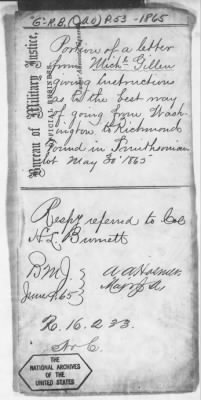 "G-R.B. (J.A.O) P.53 - 1865
Bureau of Military Justice,
OFFICIAL BUSINESS
Portion of a letter
from Michl. Gillen
giving Instructions
as to the best way
of going from Wash-
ington to Richmond
Found in Smithsonian
lot May 30' 1865
Respy referred to Col
H.L. Burnett
B.M.J.
June 9. 65
A A Hosmer
Maj. & J A
R. 16. 233.
THE
NATIONAL ARCHIVES
OF THE
UNITED STATES